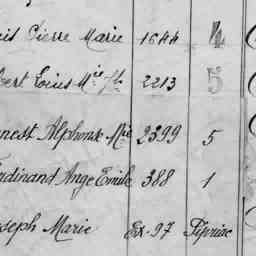 is Pierre Marie 1644 4
bert Louis Mie Jh 2213 5
nest Alphonse Mie 2399 5
erdinand Ange Emile 388 1
seph Marie Ex-97 Pipriac